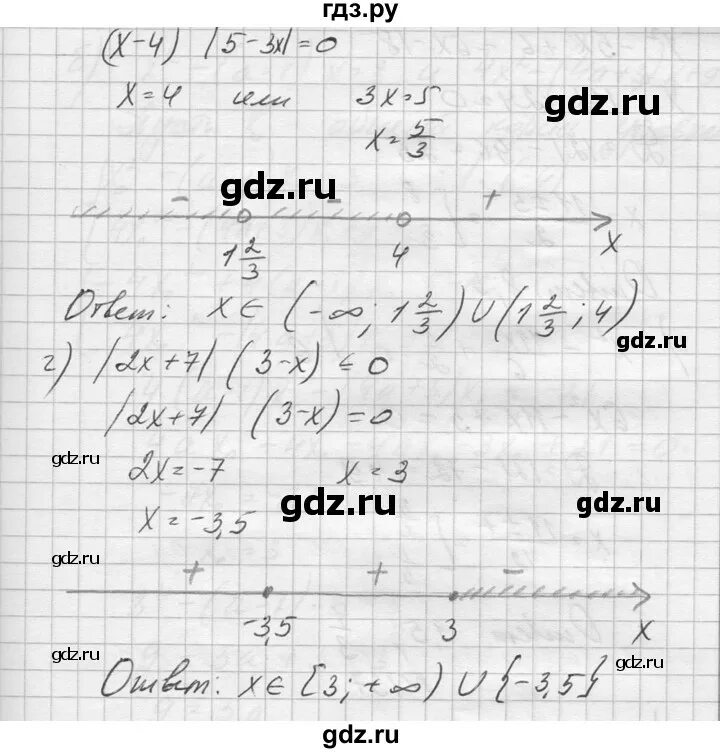 гдз.ру
(x-4) |5-3x|=0
x=4 или 3x=5
gdz.ru
x=5/3
gdz.ru
- - +
1 2/3 4 x
Ответ: x∈(-∞; 1 2/3)∪(1 2/3; 4)
gdz.ru
г) |2x+7| (3-x) ≤ 0
|2x+7| (3-x)=0
gdz.ru
2x=-7 x=3
gdz.ru gdz.ru
x=-3,5
gdz.ru
+ + -
-3,5 3 x
gdz.ru gdz.ru
Ответ: x∈[3; +∞) ∪ {-3,5}
gdz.ru